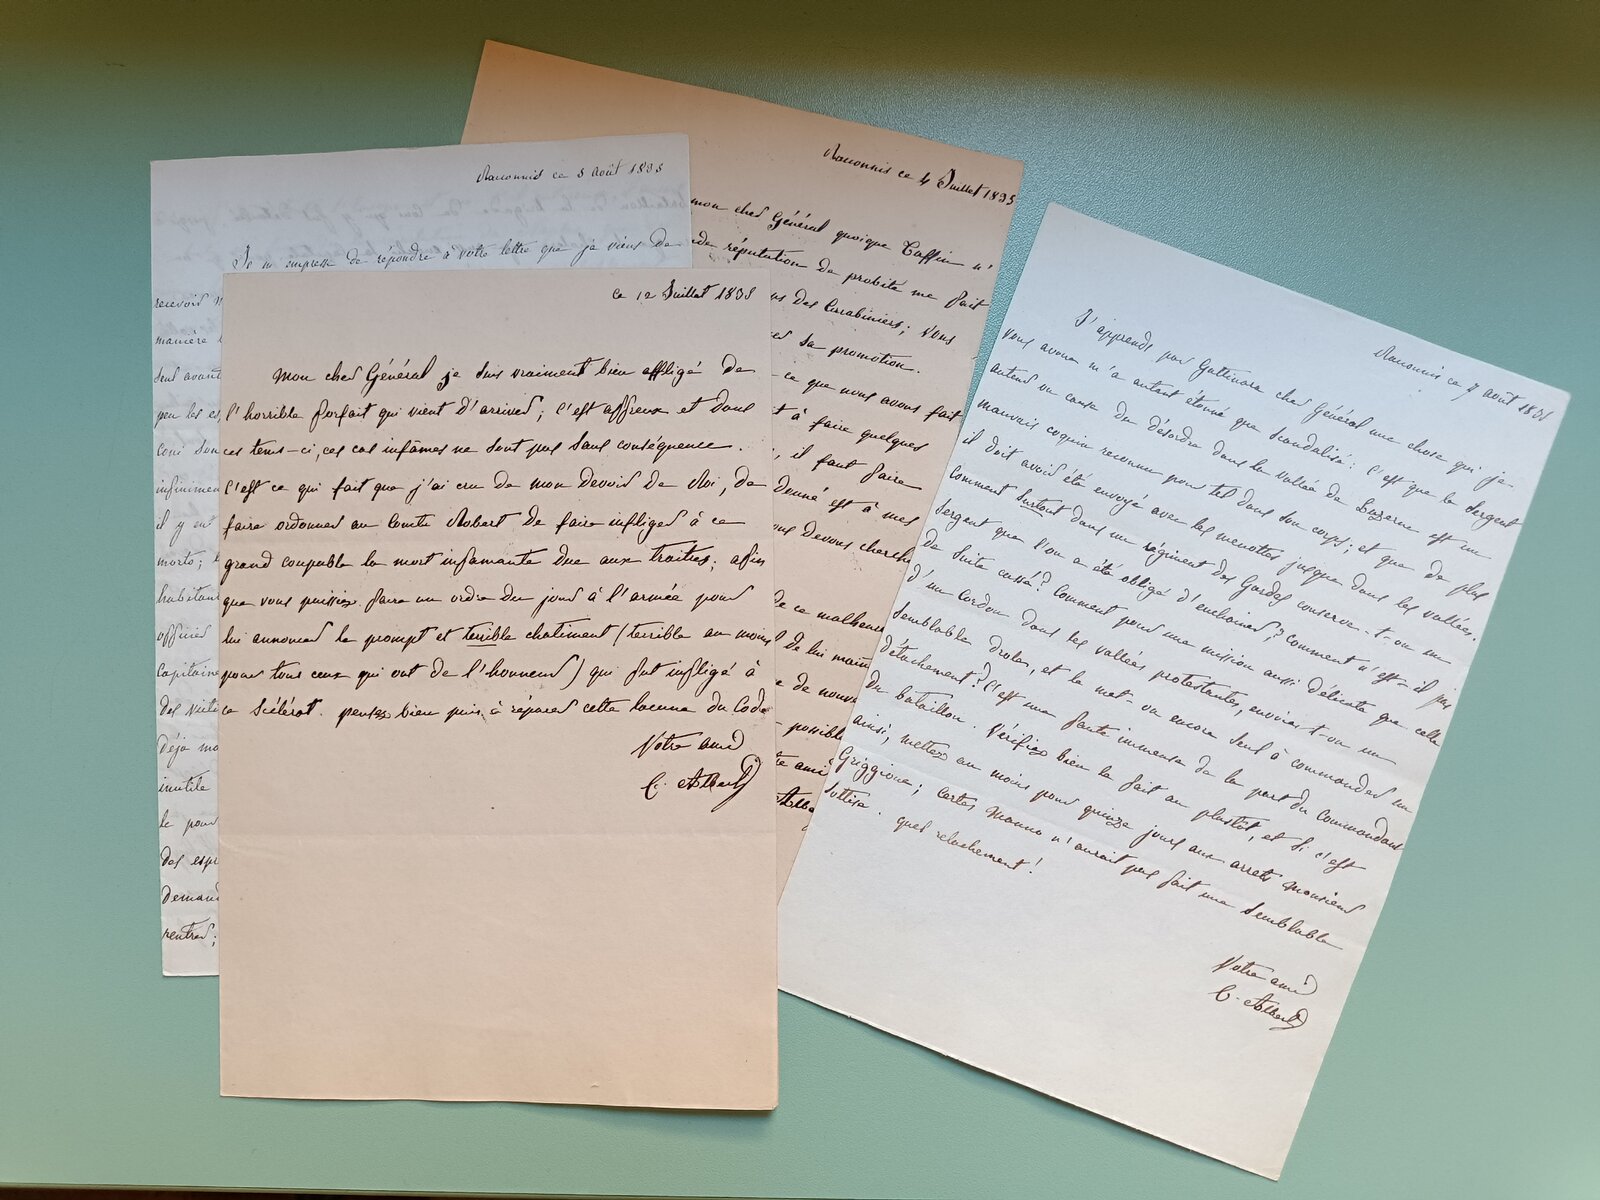 Raconnis ce 3 Août 1835
Je m'empresse de répondre à votre lettre que je viens de
recevoir
manière
seul avant
peu les es
Coni son
infiniment
il y en
morts;
habitans
officier
Capitaine
des visite
déjà mo
inutile
le pour
des espr
demand
rentrer;
Raconnis ce 4 Juillet 1835
mon cher Général quoique Taffin n'
réputation de probité me fait
des Carabiniers; vous
sa promotion.
ce que nous avons fait
à faire quelques
il faut faire
donné est à mes
devons cherch
de ce malheur
de lui main
de nouv
possible
ami
Albe
ce 12 Juillet 1835
Mon cher Général je suis vraiment bien affligé de
l'horrible forfait qui vient d'arriver; c'est affreux et dans
ces tems-ci, ces cas infâmes ne sont pas sans conséquence.
C'est ce qui fait que j'ai cru de mon devoir de Roi, de
faire ordonner au Comte Robert de faire infliger à ce
grand coupable la mort infamante due aux traîtres; afin
que vous puissiez faire un ordre du jour à l'armée pour
lui annoncer le prompt et terrible chatiment (terrible au moins
pour tous ceux qui ont de l'honneur) qui fut infligé à
ce scélérat. pensez bien puis à réparer cette lacune du Code
Votre ami
C. Albert
Raconnis ce 7 août 1835
J'apprends par Gattinara cher Général une chose qui je
vous avoue m'a autant étonné que scandalisé: c'est que le Sergent
auteur ou cause du désordre dans la vallée de Luzerne est un
mauvais coquin reconnu pour tel dans son corps; et que de plus
il doit avoir été envoyé avec les menottes jusque dans les vallées.
Comment surtout dans un régiment des Gardes conserve-t-on un
Sergent que l'on a été obligé d'enchainer? Comment n'est-il pas
de suite cassé? Comment pour une mission aussi délicate que celle
d'un Cordon dans les vallées protestantes, envoie-t-on un
semblable drole, et le met-on encore seul à commander un
détachement? C'est une faute immense de la part du Commandant
du bataillon. Vérifiez bien le fait au plustôt, et si c'est
ainsi, mettez au moins pour quinze jours aux arrets Monsieur
Griggione; certes Manno n'aurait pas fait une semblable
sottise. quel relachement!
Votre ami
C. Albert